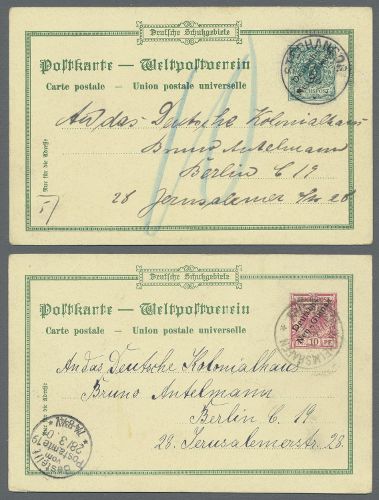 Deutsche Schutzgebiete
Postkarte — Weltpostverein
Carte postale — Union postale universelle
STEPHANSORT
Nur für die Adresse
An das Deutsche Kolonialhaus
Bruno Antelmann
Berlin C 19
28 Jerusalemer 28
10
Deutsche Schutzgebiete
Postkarte — Weltpostverein
Carte postale — Union postale universelle
10 PF
Nur für die Adresse
An das Deutsche Kolonialhaus
Bruno Antelmann
Berlin C. 19
28. Jerusalemerstr. 28.
Bestellt
vom
Postamte 19
28/3 01